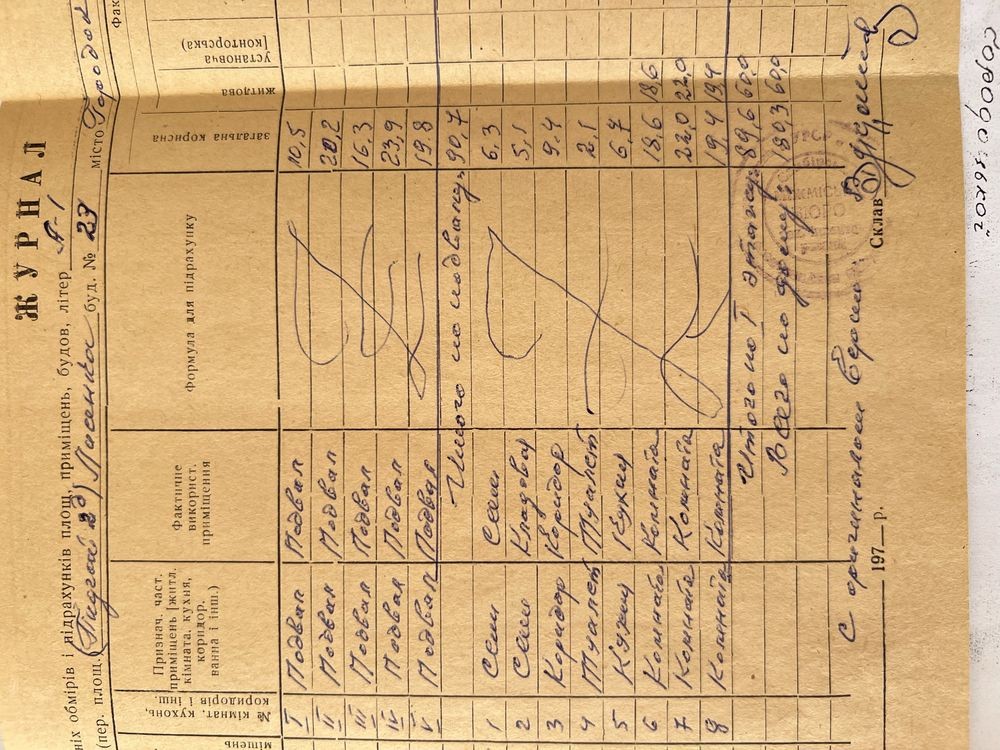 ЖУРНАЛ
ніх обмірів і підрахунків площ, приміщень, будов, літер А-1
(пер. площ. буд. № 23 місто Городок
мішень
№ кімнат. кухонь, коридорів і інш.
Признач. част. приміщень [житл. кімната, кухня, коридор, ванна і інш.)
Фактичне використ. приміщення
Формула для підрахунку
загальна корисна
житлова
установча [конторська)
I Подвал Подвал 10,5
II Подвал Подвал 20,2
III Подвал Подвал 16,3
IV Подвал Подвал 23,9
V Подвал Подвал 19,8
Итого по подвалу: 90,7
1 Сени Сени 6,3
2 Сени Кладовая 5,1
3 Коридор Коридор 9,4
4 Туалет Туалет 2,1
5 Кухня Кухня 6,7
6 Комната Комната 18,6 18,6
7 Комната Комната 22,0 22,0
8 Комната Комната 19,4 19,4
Итого по I этажу: 89,6 60,0
Всего по дому: 180,3 60,0
С оригиналом верно:
197__р. Склав